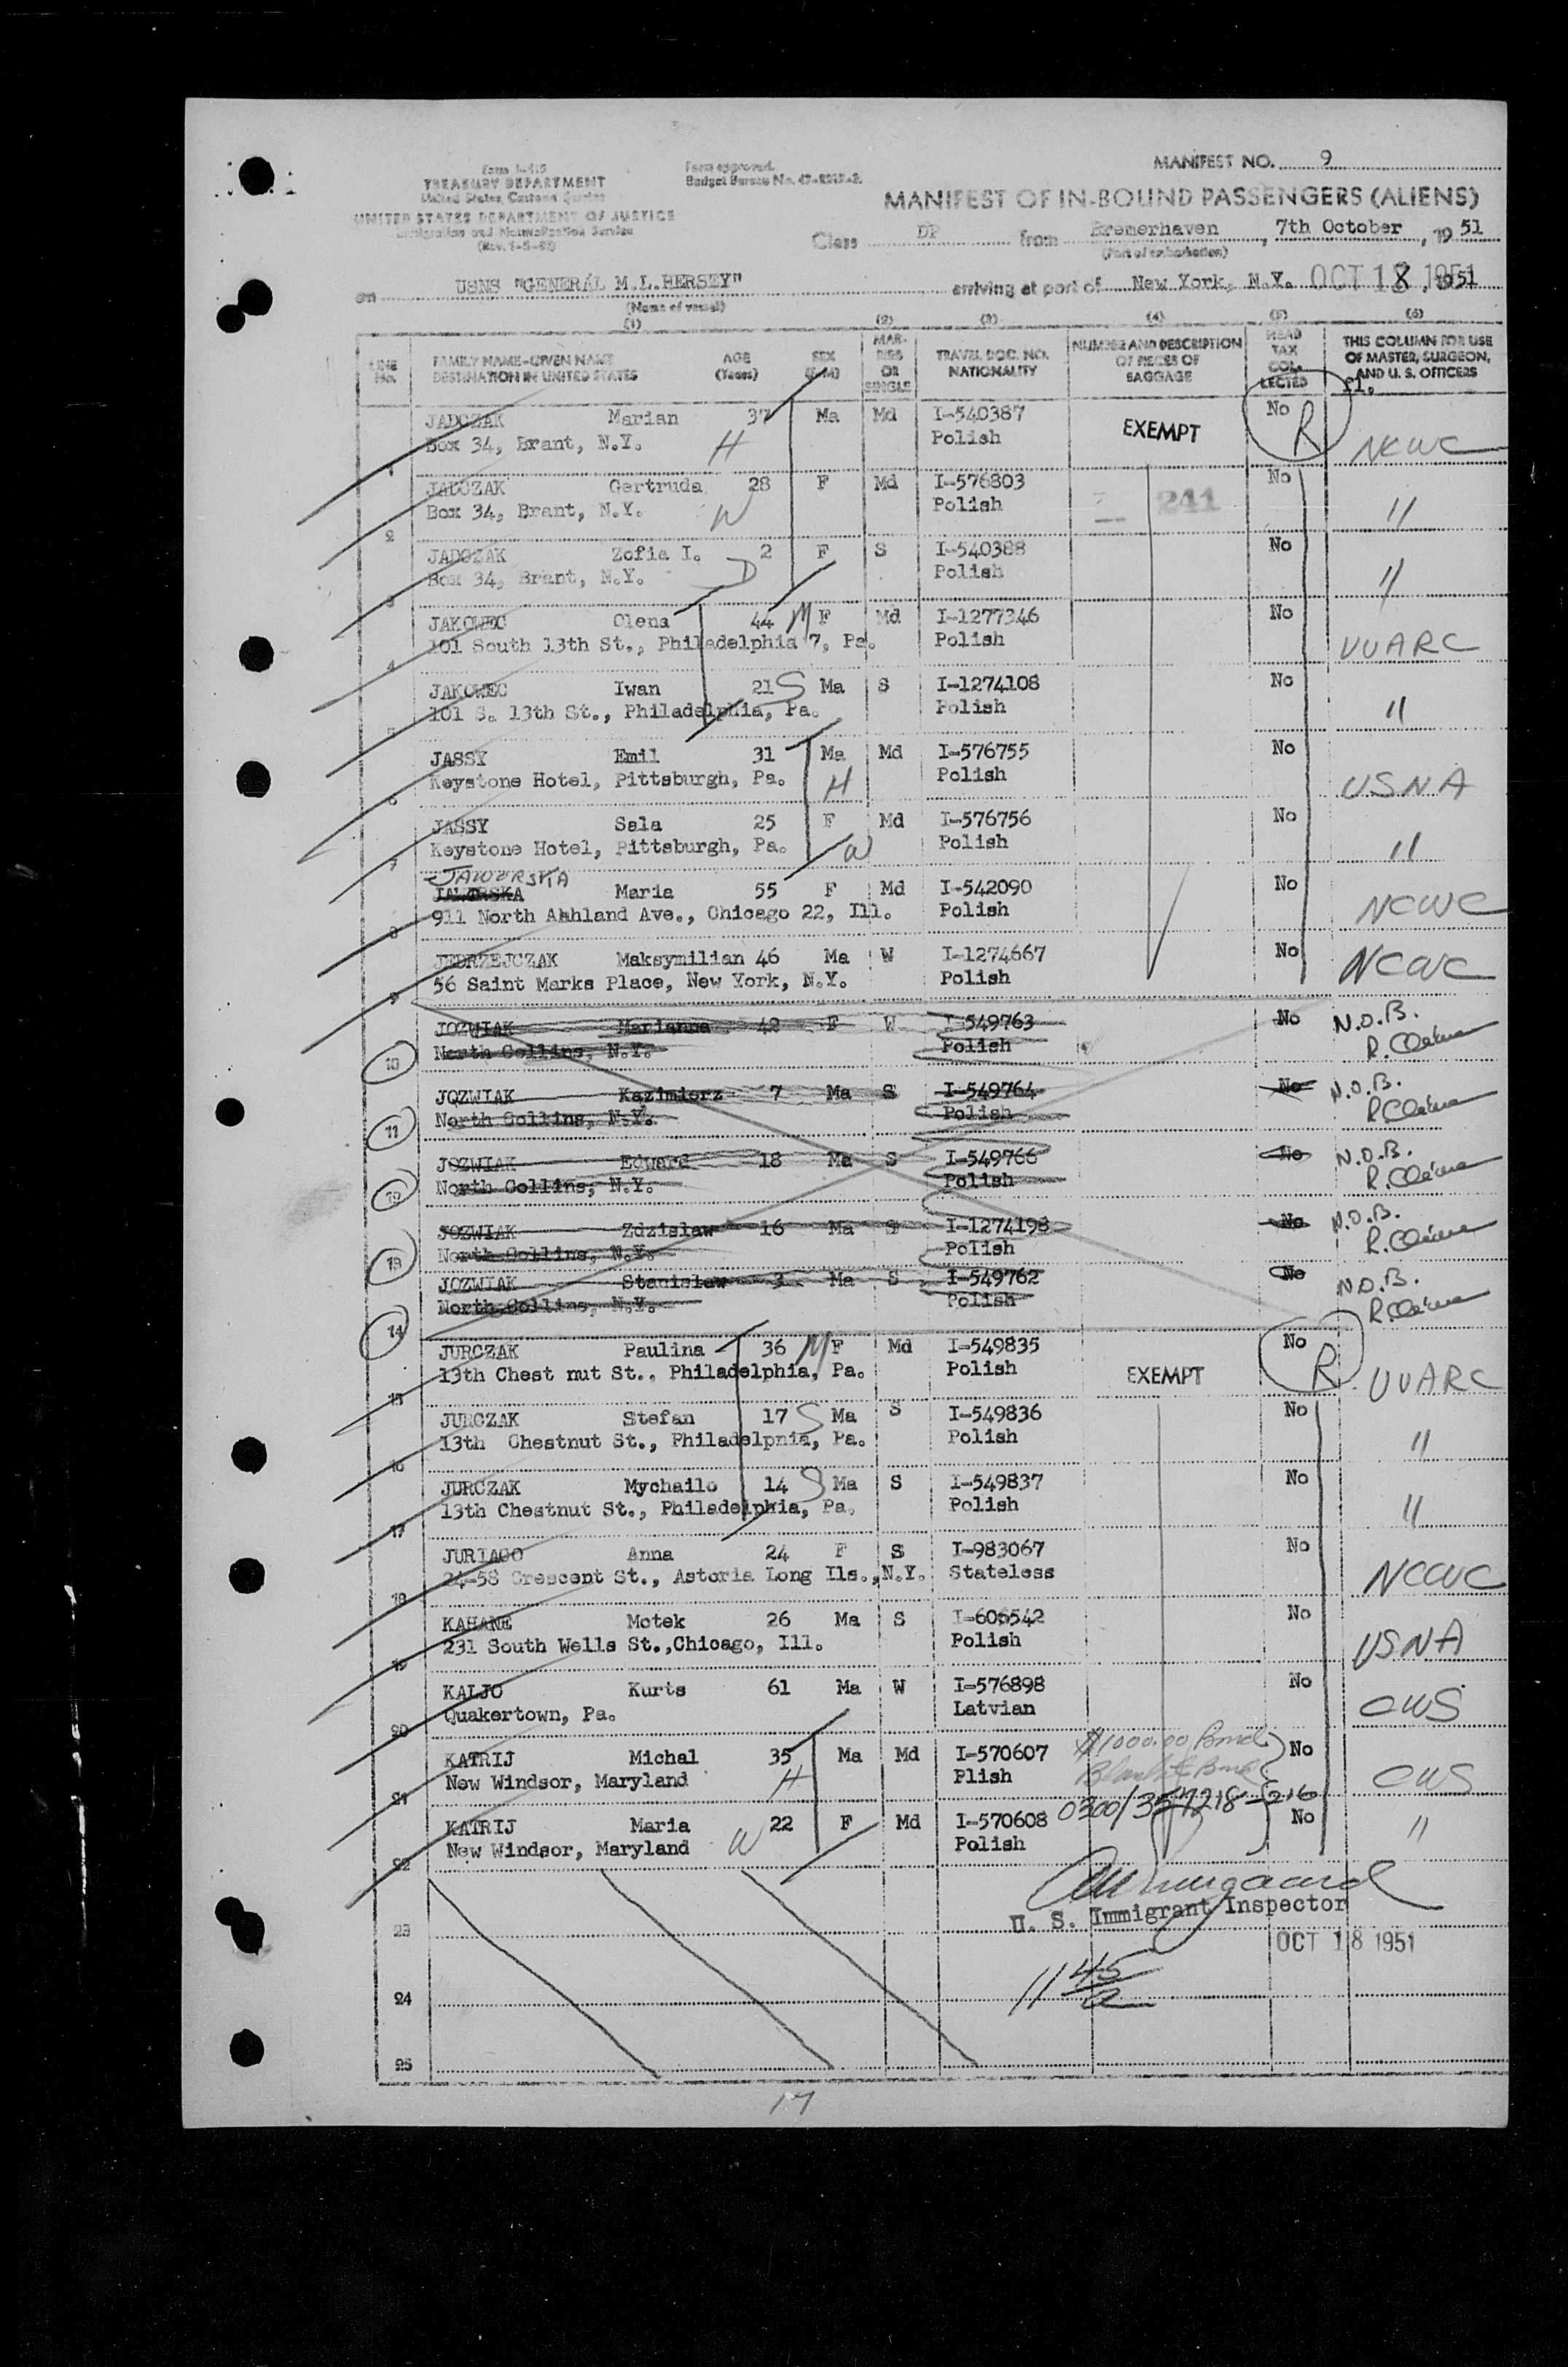 MANIFEST NO. 9
Form I-415
TREASURY DEPARTMENT
United States Customs Service
UNITED STATES DEPARTMENT OF JUSTICE
Immigration and Naturalization Service
Form approved.
Budget Bureau No.
MANIFEST OF IN-BOUND PASSENGERS (ALIENS)
Class DP from Bremerhaven, 7th October, 1951
(Port of embarkation)
on USNS "GENERAL M.L.HERSEY" arriving at port of New York, N.Y. OCT 18 1951, 1951
(Name of vessel)
(1) (2) (3) (4) (5) (6)
LINE No. FAMILY NAME-GIVEN NAME DESTINATION IN UNITED STATES AGE (Years) SEX (F-M) MARRIED OR SINGLE TRAVEL DOC. NO. NATIONALITY NUMBER AND DESCRIPTION OF PIECES OF BAGGAGE HEAD TAX COLLECTED THIS COLUMN FOR USE OF MASTER, SURGEON, AND U. S. OFFICERS
JADCZAK Marian 37 Ma Md I-540387 EXEMPT No R NCWC
1 Box 34, Brant, N.Y. H Polish
JADCZAK Gertruda 28 F Md I-576803 241 No "
2 Box 34, Brant, N.Y. W Polish
JADCZAK Zofia I. 2 F S I-540388 No "
3 Box 34, Brant, N.Y. D Polish
JAKOWEC Olena 44 M F Md I-1277346 No UUARC
4 101 South 13th St., Philadelphia 7, Pa. Polish
JAKOWEC Iwan 21 S Ma S I-1274108 No "
5 101 S. 13th St., Philadelphia, Pa. Polish
JASSY Emil 31 Ma Md I-576755 No USNA
6 Keystone Hotel, Pittsburgh, Pa. H Polish
JASSY Sala 25 F Md I-576756 No "
7 Keystone Hotel, Pittsburgh, Pa. W Polish
JAWORSKA
Maria 55 F Md I-542090 No NCWC
8 911 North Ahhland Ave., Chicago 22, Ill. Polish
JEDRZEJCZAK Maksymilian 46 Ma W I-1274667 No NCWC
9 56 Saint Marks Place, New York, N.Y. Polish
JOZWIAK Marianna 42 F W I-549763 No N.O.B.
10 North Collins, N.Y. Polish
JOZWIAK Kazimierz 7 Ma S I-549764 No N.O.B.
11 North Collins, N.Y. Polish
JOZWIAK Edward 18 Ma S I-549766 No N.O.B.
12 North Collins, N.Y. Polish
JOZWIAK Zdzislaw 16 Ma S I-1274198 No N.O.B.
13 North Collins, N.Y. Polish
JOZWIAK Stanislaw 3 Ma S I-549762 No N.O.B.
14 North Collins, N.Y. Polish
JURCZAK Paulina 36 M F Md I-549835 EXEMPT No R UUARC
15 13th Chest nut St., Philadelphia, Pa. Polish
JURCZAK Stefan 17 S Ma S I-549836 No "
16 13th Chestnut St., Philadelpnia, Pa. Polish
JURCZAK Mychailo 14 S Ma S I-549837 No "
17 13th Chestnut St., Philadelphia, Pa. Polish
JURIAGO Anna 24 F S I-983067 No NCWC
18 24-58 Crescent St., Astoria Long Ils., N.Y. Stateless
KAHANE Motek 26 Ma S I-606542 No USNA
19 231 South Wells St.,Chicago, Ill. Polish
KALJO Kurts 61 Ma W I-576898 No CWS
20 Quakertown, Pa. Latvian
KATRIJ Michal 35 Ma Md I-570607 $1000.00 Bond No CWS
21 New Windsor, Maryland H Plish
KATRIJ Maria 22 F Md I-570608 No "
22 New Windsor, Maryland W Polish
23 U. S. Immigrant Inspector
OCT 18 1951
24 11 45 a
25
17